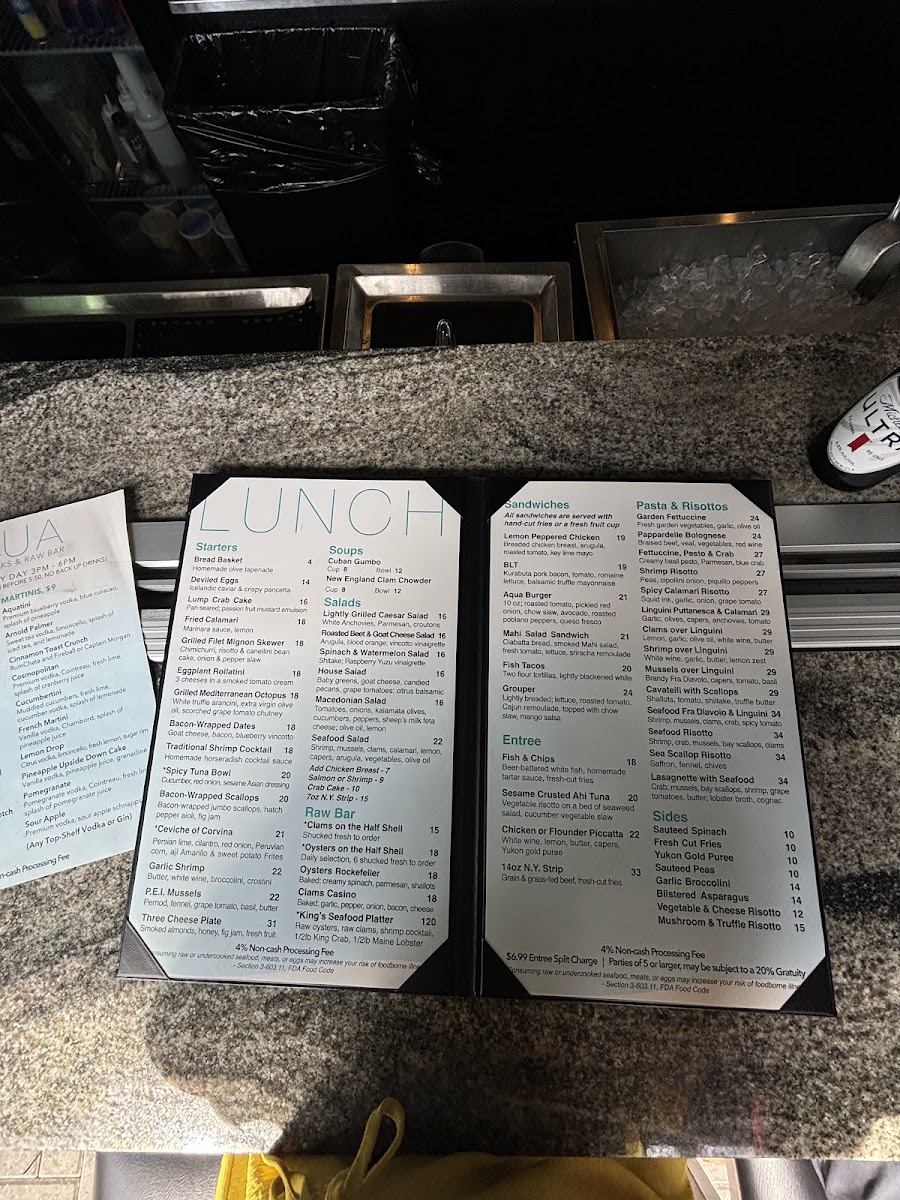 UA
KS & RAW BAR
Y DAY 3PM - 6PM
BEFORE 5:50, NO BACK UP DRINKS)
MARTINIS, $9
Aquatini
Premium blueberry vodka, blue curacao,
splash of pineapple
Arnold Palmer
Sweet tea vodka, limoncello, splash of
iced tea, and lemonade
Cinnamon Toast Crunch
RumChata and Fireball or Captain Morgan
Cosmopolitan
Premium vodka, Cointreau, fresh lime,
splash of cranberry juice
Cucumbertini
Muddled cucumbers, fresh lime,
cucumber vodka, splash of lemonade
French Martini
Vanilla vodka, Chambord, splash of
pineapple juice
Lemon Drop
Citrus vodka, limoncello, fresh lemon, sugar rim
Pineapple Upside Down Cake
Vanilla vodka, pineapple juice, grenadine
Pomegranate
Pomegranate vodka, Cointreau, fresh lim
splash of pomegranate juice
Sour Apple
Premium vodka, sour apple schnapps
(Any Top-Shelf Vodka or Gin)
n-cash Processing Fee
LUNCH
Starters
Bread Basket 4
Homemade olive tapenade
Deviled Eggs 14
Icelandic caviar & crispy pancetta
Lump Crab Cake 16
Pan seared, passion fruit mustard emulsion
Fried Calamari 18
Marinara sauce, lemon
Grilled Filet Mignon Skewer 18
Chimichurri, risotto & canellini bean
cake, onion & pepper slaw
Eggplant Rollatini 18
3 cheeses in a smoked tomato cream
Grilled Mediterranean Octopus 18
White truffle aranzini, extra virgin olive
oil, scorched grape tomato chutney
Bacon-Wrapped Dates 18
Goat cheese, bacon, blueberry vincotto
Traditional Shrimp Cocktail 18
Homemade horseradish cocktail sauce
*Spicy Tuna Bowl 20
Cucumber, red onion, sesame Asian dressing
Bacon-Wrapped Scallops 20
Bacon-wrapped jumbo scallops, hatch
pepper aioli, fig jam
*Ceviche of Corvina 21
Persian lime, cilantro, red onion, Peruvian
corn, ají Amarillo & sweet potato Frites
Garlic Shrimp 22
Butter, white wine, broccolini, crostini
P.E.I. Mussels 22
Pernod, fennel, grape tomato, basil, butter
Three Cheese Plate 31
Smoked almonds, honey, fig jam, fresh fruit
Soups
Cuban Gumbo
Cup 8 Bowl 12
New England Clam Chowder
Cup 8 Bowl 12
Salads
Lightly Grilled Caesar Salad 16
White Anchovies, Parmesan, croutons
Roasted Beet & Goat Cheese Salad 16
Arugula, blood orange; vincotto vinaigrette
Spinach & Watermelon Salad 16
Shitake; Raspberry Yuzu vinaigrette
House Salad 16
Baby greens, goat cheese, candied
pecans, grape tomatoes; citrus balsamic
Macedonian Salad 16
Tomatoes, onions, kalamata olives,
cucumbers, peppers, sheep's milk feta
cheese; olive oil, lemon
Seafood Salad 22
Shrimp, mussels, clams, calamari, lemon,
capers, arugula, vegetables, olive oil
Add Chicken Breast - 7
Salmon or Shrimp - 9
Crab Cake - 10
7oz N.Y. Strip - 15
Raw Bar
*Clams on the Half Shell 15
Shucked fresh to order
*Oysters on the Half Shell 18
Daily selection, 6 shucked fresh to order
Oysters Rockefeller 18
Baked; creamy spinach, parmesan, shallots
Clams Casino 18
Baked; garlic, pepper, onion, bacon, cheese
*King's Seafood Platter 120
Raw oysters, raw clams, shrimp cocktail,
1/2lb King Crab, 1/2lb Maine Lobster
4% Non-cash Processing Fee
onsuming raw or undercooked seafood, meats, or eggs may increase your risk of foodborne illne
- Section 3-603.11, FDA Food Code
Sandwiches
All sandwiches are served with
hand-cut fries or a fresh fruit cup
Lemon Peppered Chicken 19
Breaded chicken breast, arugula,
roasted tomato, key lime mayo
BLT 19
Kurabuta pork bacon, tomato, romaine
lettuce, balsamic truffle mayonnaise
Aqua Burger 21
10 oz; roasted tomato, pickled red
onion, chow slaw, avocado, roasted
poblano peppers, queso fresco
Mahi Salad Sandwich 21
Ciabatta bread, smoked Mahi salad,
fresh tomato, lettuce, sriracha remoulade
Fish Tacos 20
Two flour tortillas, lightly blackened white
Grouper 24
Lightly breaded; lettuce, roasted tomato,
Cajun remoulade, topped with chow
slaw, mango salsa
Entree
Fish & Chips 18
Beer-battered white fish, homemade
tartar sauce, fresh-cut fries
Sesame Crusted Ahi Tuna 20
Vegetable risotto on a bed of seaweed
salad, cucumber vegetable slaw
Chicken or Flounder Piccatta 22
White wine, lemon, butter, capers,
Yukon gold puree
14oz N.Y. Strip 33
Grain & grass-fed beef, fresh-cut fries
Pasta & Risottos
Garden Fettuccine 24
Fresh garden vegetables, garlic, olive oil
Pappardelle Bolognese 24
Braised beef, veal, vegetables, red wine
Fettuccine, Pesto & Crab 27
Creamy basil pesto, Parmesan, blue crab
Shrimp Risotto 27
Peas, cipollini onion, piquillo peppers
Spicy Calamari Risotto 27
Squid ink, garlic, onion, grape tomato
Linguini Puttanesca & Calamari 29
Garlic, olives, capers, anchovies, tomato
Clams over Linguini 29
Lemon, garlic, olive oil, white wine, butter
Shrimp over Linguini 29
White wine, garlic, butter, lemon zest
Mussels over Linguini 29
Brandy Fra Diavolo, capers, tomato, basil
Cavatelli with Scallops 29
Shallots, tomato, shiitake, truffle butter
Seafood Fra Diavolo & Linguini 34
Shrimp, mussels, clams, crab, spicy tomato
Seafood Risotto 34
Shrimp, crab, mussels, bay scallops, clams
Sea Scallop Risotto 34
Saffron, fennel, chives
Lasagnette with Seafood 34
Crab, mussels, bay scallops, shrimp, grape
tomatoes, butter, lobster broth, cognac
Sides
Sauteed Spinach 10
Fresh Cut Fries 10
Yukon Gold Puree 10
Sauteed Peas 10
Garlic Broccolini 14
Blistered Asparagus 14
Vegetable & Cheese Risotto 12
Mushroom & Truffle Risotto 15
4% Non-cash Processing Fee
$6.99 Entree Split Charge | Parties of 5 or larger, may be subject to a 20% Gratuity
Consuming raw or undercooked seafood, meats, or eggs may increase your risk of foodborne illne
- Section 3-603.11, FDA Food Code
ULTR